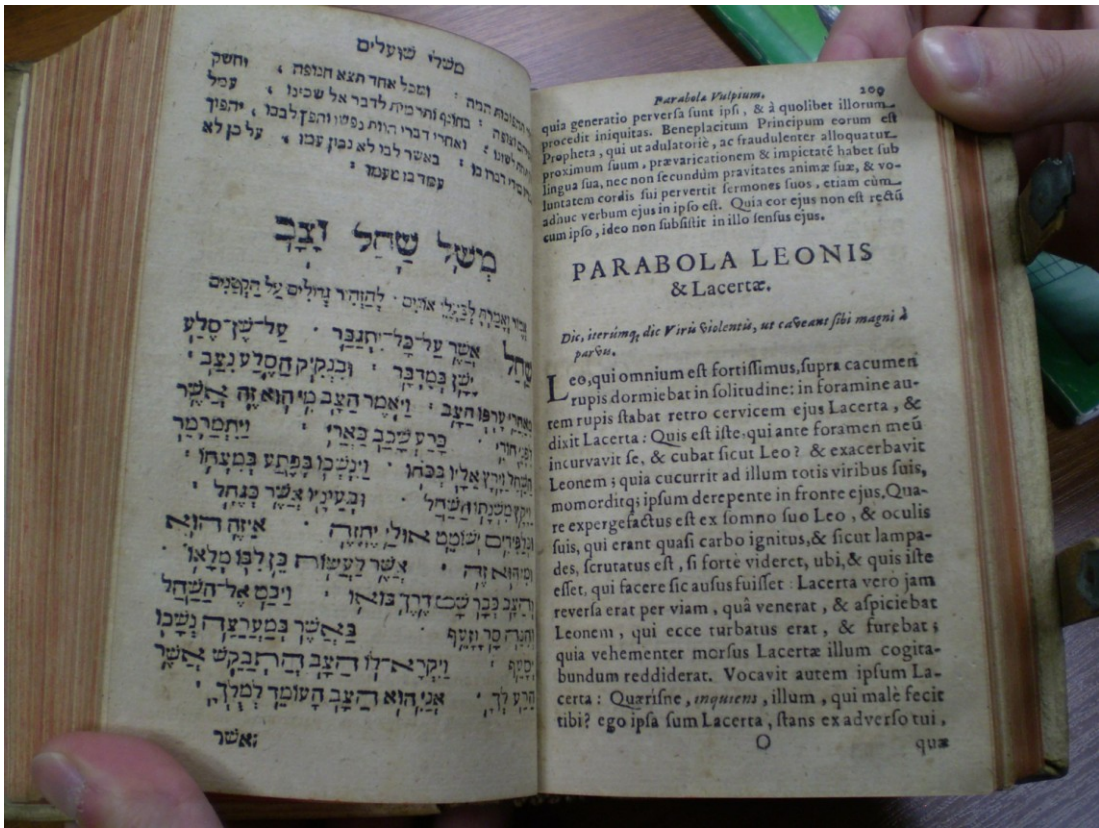 משלי שועלים
ושכל אחד תצא חנופה , וחשק
עמל
ואחרי דברי הוות נפשו והפך לבבו , יהפוך
באשר לבו לא נכון עמו , על כן לא
עמד בו טעמו :
מְשַׁל שַׁחַל וְצָב
לְהַזְהִיר גְּדוֹלִים עַל הַקְּטַנִּים
שַׁחַל אֲשֶׁר עַל־כָּל־יִתְגַּבַּר עַל־שֶׁן־סֶלַע
יָשֵׁן בַּמִּדְבָּר וּבִנְקִיק הַסֶּלַע נִצָּב
מֵאַחֲרֵי עָרְפּוֹ הַצָּב וַיֹּאמֶר הַצָּב מִי הוּא זֶה אֲשֶׁר
כָּרַע שָׁכַב כָּאֲרִי וַיִּתְמַרְמַר
וַיָּרָץ אֵלָיו בְּכֹחוֹ וַיִּנְשְׁכוֹ בְּפֶתַע בְּמִצְחוֹ
וַיִּקַץ מִשְּׁנָתוֹ הַשַּׁחַל וּבְעֵינָיו אֲשֶׁר כְּגַחַל
אוּלַי יֶחֱזֶה אֵיזֶה הוּא
וּמִי הוּא זֶה אֲשֶׁר לַעֲשׂוֹת כֵּן לִבּוֹ מְלָאוֹ
וְהַצָּב כְּבָר שָׁב דֶּרֶךְ בּוֹאוֹ וַיַּבֵּט אֶל־הַשַּׁחַל
וְהִנֵּה סַר וְזָעֵף נְשָׁכוֹ
וַיִּקְרָא־לוֹ הַצָּב הֲתְבַקֵּשׁ אֲשֶׁר
הֵרַע לְךָ אֲנִי הוּא הַצָּב הָעוֹמֵד לְמֻלְּךָ
אשר
Parabola Vulpium. 209
quia generatio perversa sunt ipsi, & à quolibet illorum
procedit iniquitas. Beneplacitum Principum eorum est
Propheta, qui ut adulatoriè, ac fraudulenter alloquatur
proximum suum, prævaricationem & impietatē habet sub
lingua sua, nec non secundùm pravitates animæ suæ, & vo-
luntatem cordis sui pervertit sermones suos, etiam cùm
adhuc verbum ejus in ipso est. Quia cor ejus non est rectū
cum ipso, ideo non subsistit in illo sensus ejus.
PARABOLA LEONIS
& Lacertæ.
Dic, iterúmq; dic Viris violentis, ut caveant sibi magni à
parvis.
Leo, qui omnium est fortissimus, supra cacumen
rupis dormiebat in solitudine: in foramine au-
tem rupis stabat retro cervicem ejus Lacerta, &
dixit Lacerta: Quis est iste, qui ante foramen meū
incurvavit se, & cubat sicut Leo? & exacerbavit
Leonem; quia cucurrit ad illum totis viribus suis,
momorditq; ipsum derepente in fronte ejus, Qua-
re expergefactus est ex somno suo Leo, & oculis
suis, qui erant quasi carbo ignitus, & sicut lampa-
des, scrutatus est, si fortè videret, ubi, & quis iste
esset, qui facere sic ausus fuisset: Lacerta verò jam
reversa erat per viam, quâ venerat, & aspiciebat
Leonem, qui ecce turbatus erat, & furebat;
quia vehementer morsus Lacertæ illum cogita-
bundum reddiderat. Vocavit autem ipsum La-
certa: Quærisne, inquiens, illum, qui malè fecit
tibi? ego ipsa sum Lacerta, stans ex adverso tui,
O quæ